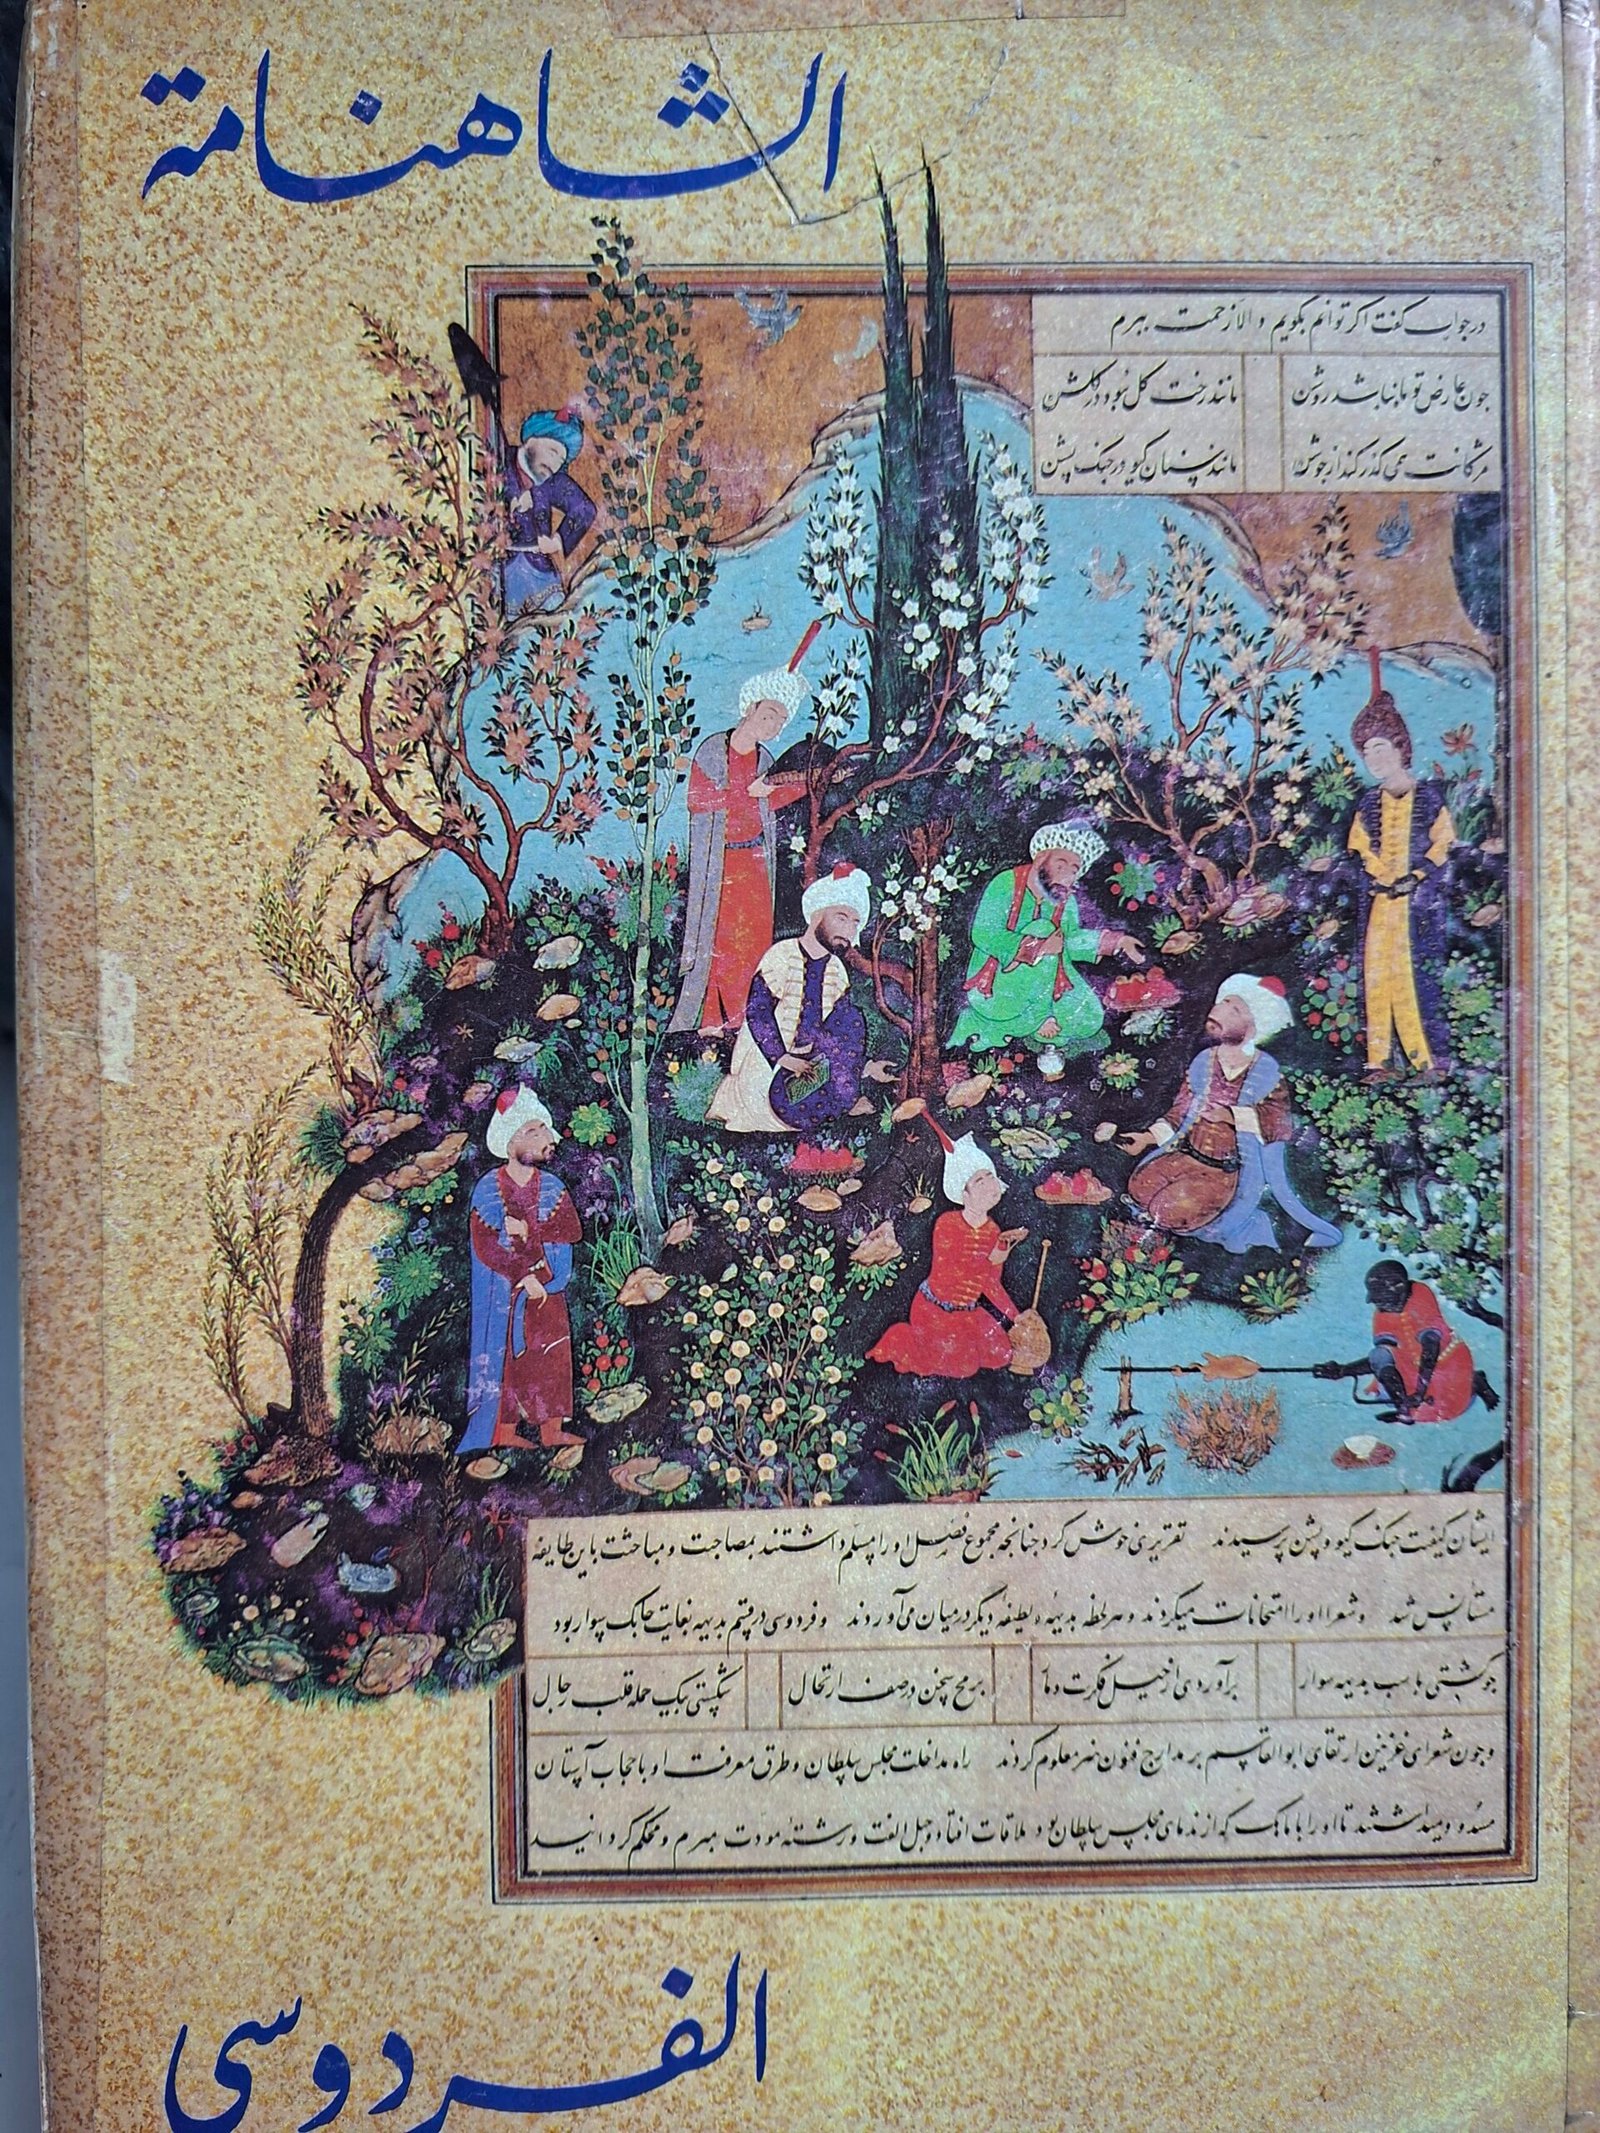 الشاهنامة
در جواب گفت اگر توانم بگویم و الا زحمت ببرم
جون عارض تو ماه نباشد روشن
مانند رخت گل نبود در گلشن
مژگانت همی گذر کند از جوشن
مانند سنان گیو در جنگ پشن
ایشان کیفیت جنگ گیو و پشن پرسیدند تقریری خوش کرد جنانجه مجموع فضل او را مسلم داشتند بمصاحبت و مباحثت باین طایفه
مستأنس شد و شعرا او را امتحانات میکردند و هر لحظه بدیهه و لطیفهٔ دیگر در میان می آوردند و فردوسی در قسم بدیهه بغایت جابک سوار بود
جو گشتی باسب بدیهه سوار
برآوردی از خیل فکرت دمار
برمح سخن در صف ارتجال
شکستی بیک حمله قلب رجال
و جون شعرای غزنین ارتقای ابو القاسم بر مدارج فنون هنر معلوم کردند راه مداخلت مجلس سلطان و طرق معرفت او با حجاب آستان
مسدود میداشتند تا او را با ماهک که از ندمای مجلس سلطان بود ملاقات افتاد و حبل الفت و رشتهٔ مودت مبرم و محکم گردانید
الفردوسی